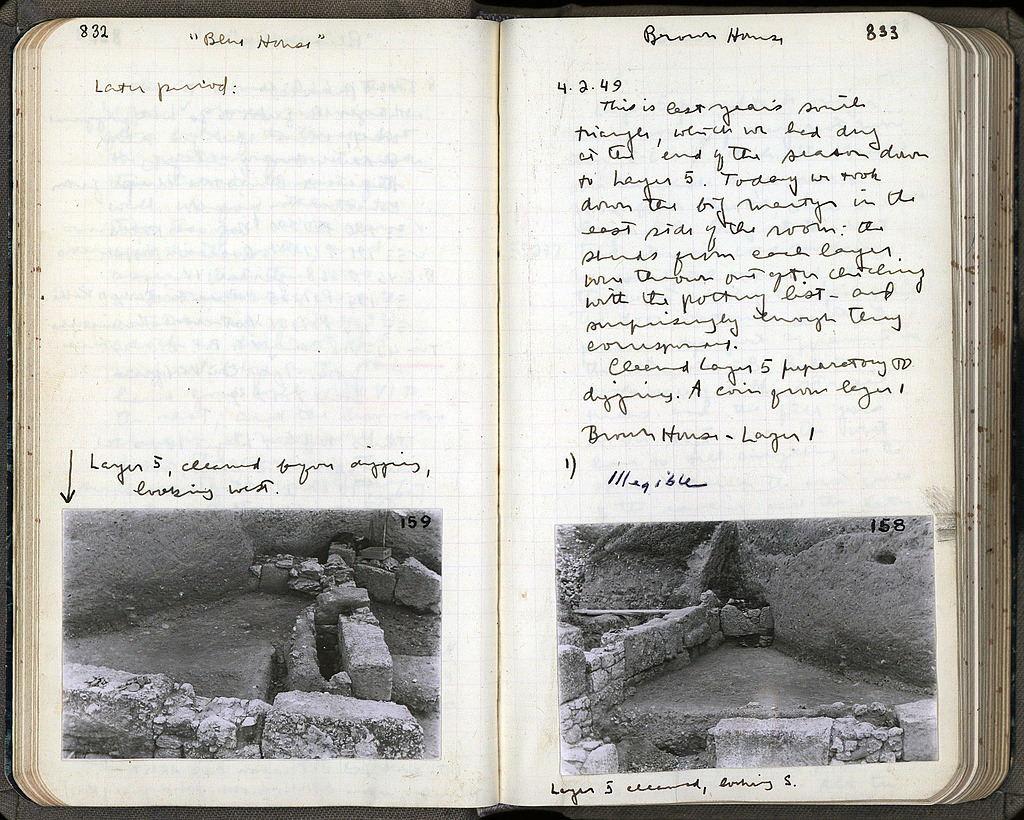 832
"Blue House"
Later period:
Layer 5, cleaned before digging,
looking west.
159
Brown House
833
4.2.49
This is last year's south
triangle, which we had dug
at the end of the season down
to Layer 5. Today we took
down the big martyr in the
east side of the room: the
sherds from each layer
were thrown out after checking
with the pottery list – and
surprisingly enough they
correspond.
Cleaned Layer 5 preparatory to
digging. A coin from layer 1
Brown House - Layer 1
1)
Illegible
158
Layer 5 cleaned, looking S.